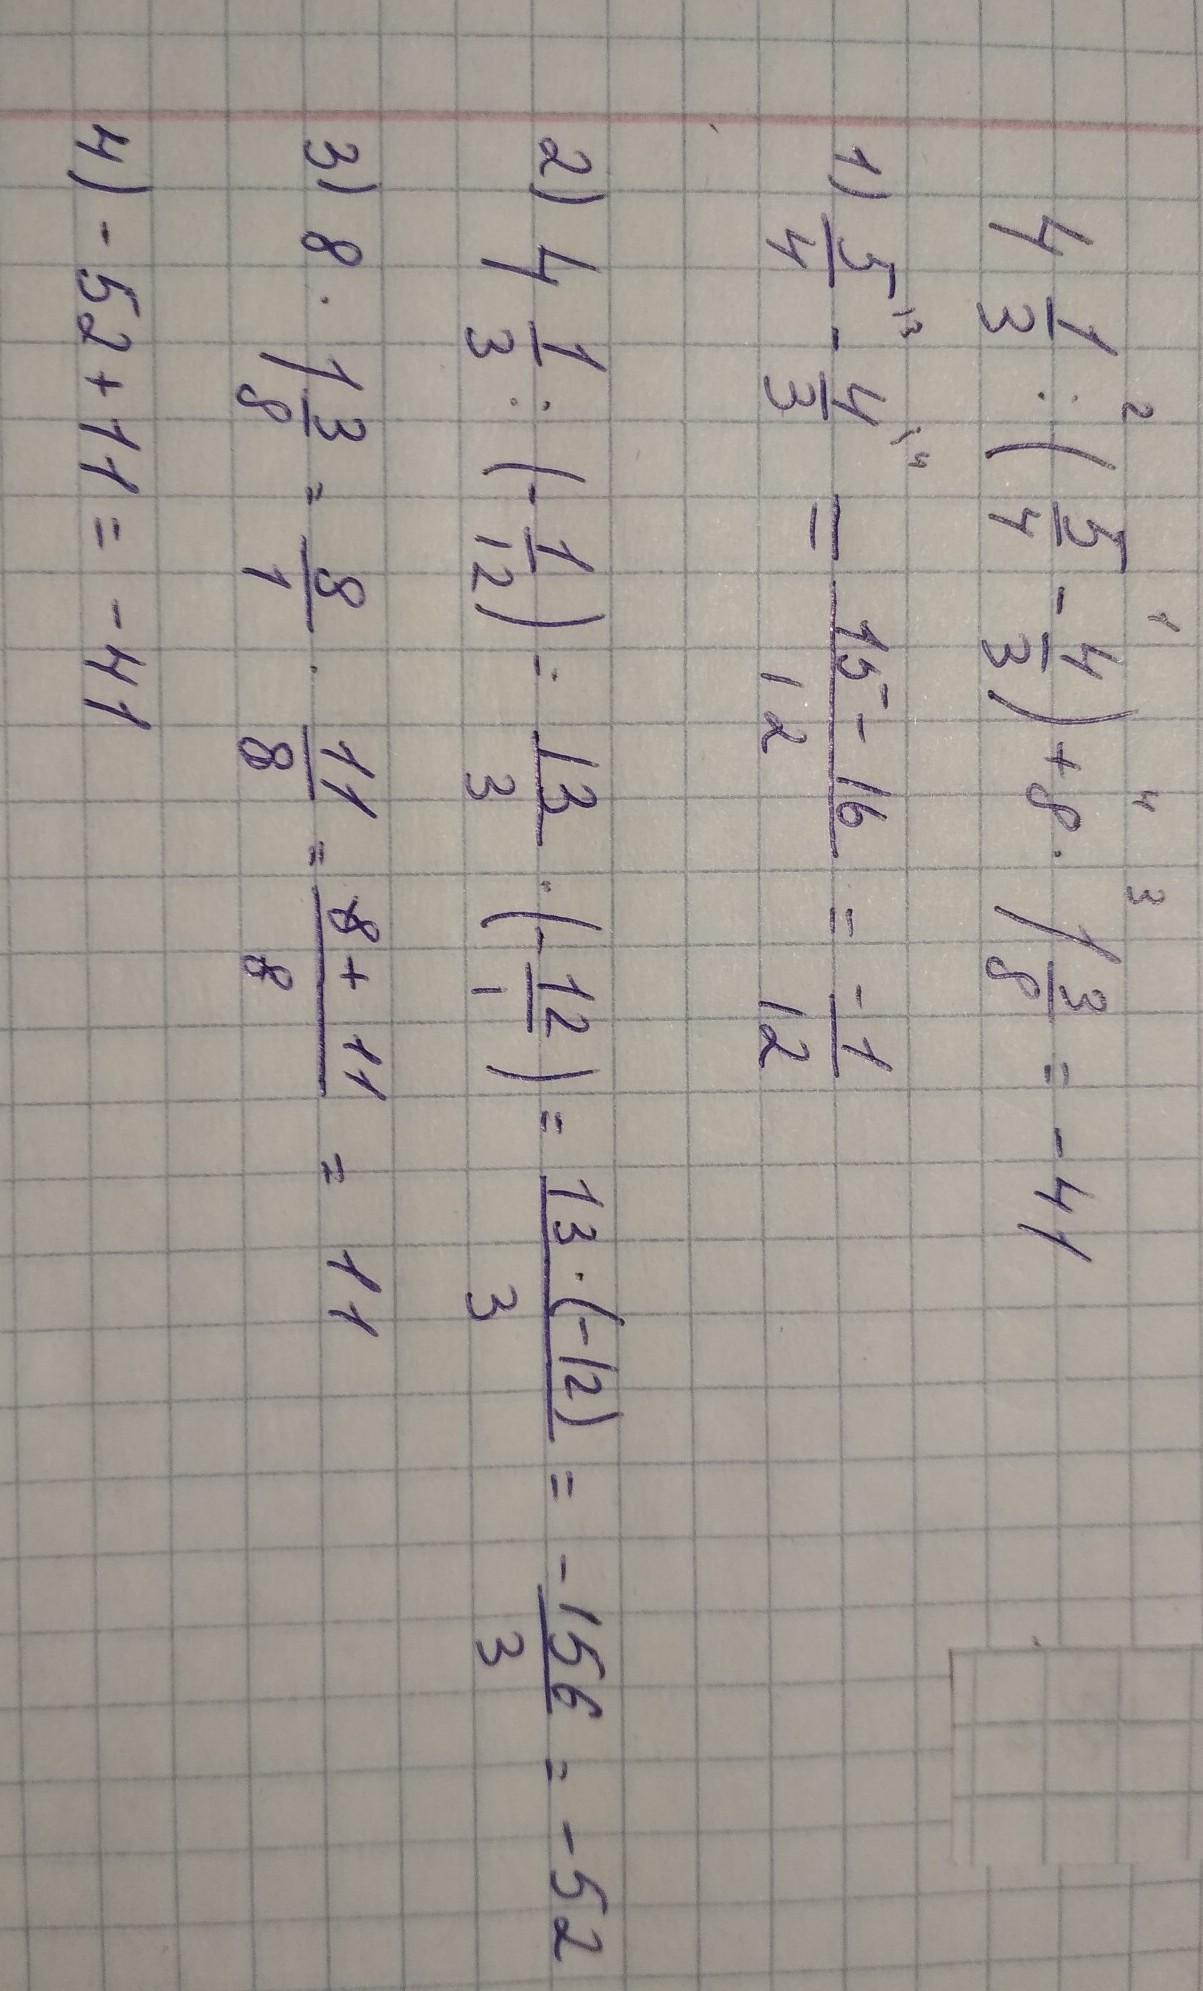 4 1/3 : (5/4 - 4/3) + 8 · 1 3/8 = -41
1) 5/4 - 4/3 = 15-16/12 = -1/12
2) 4 1/3 : (-1/12) = 13/3 · (-12/1) = 13·(-12)/3 = -156/3 = -52
3) 8 · 1 3/8 = 8/1 · 11/8 = 8+11/8 = 11
4) -52+11 = -41